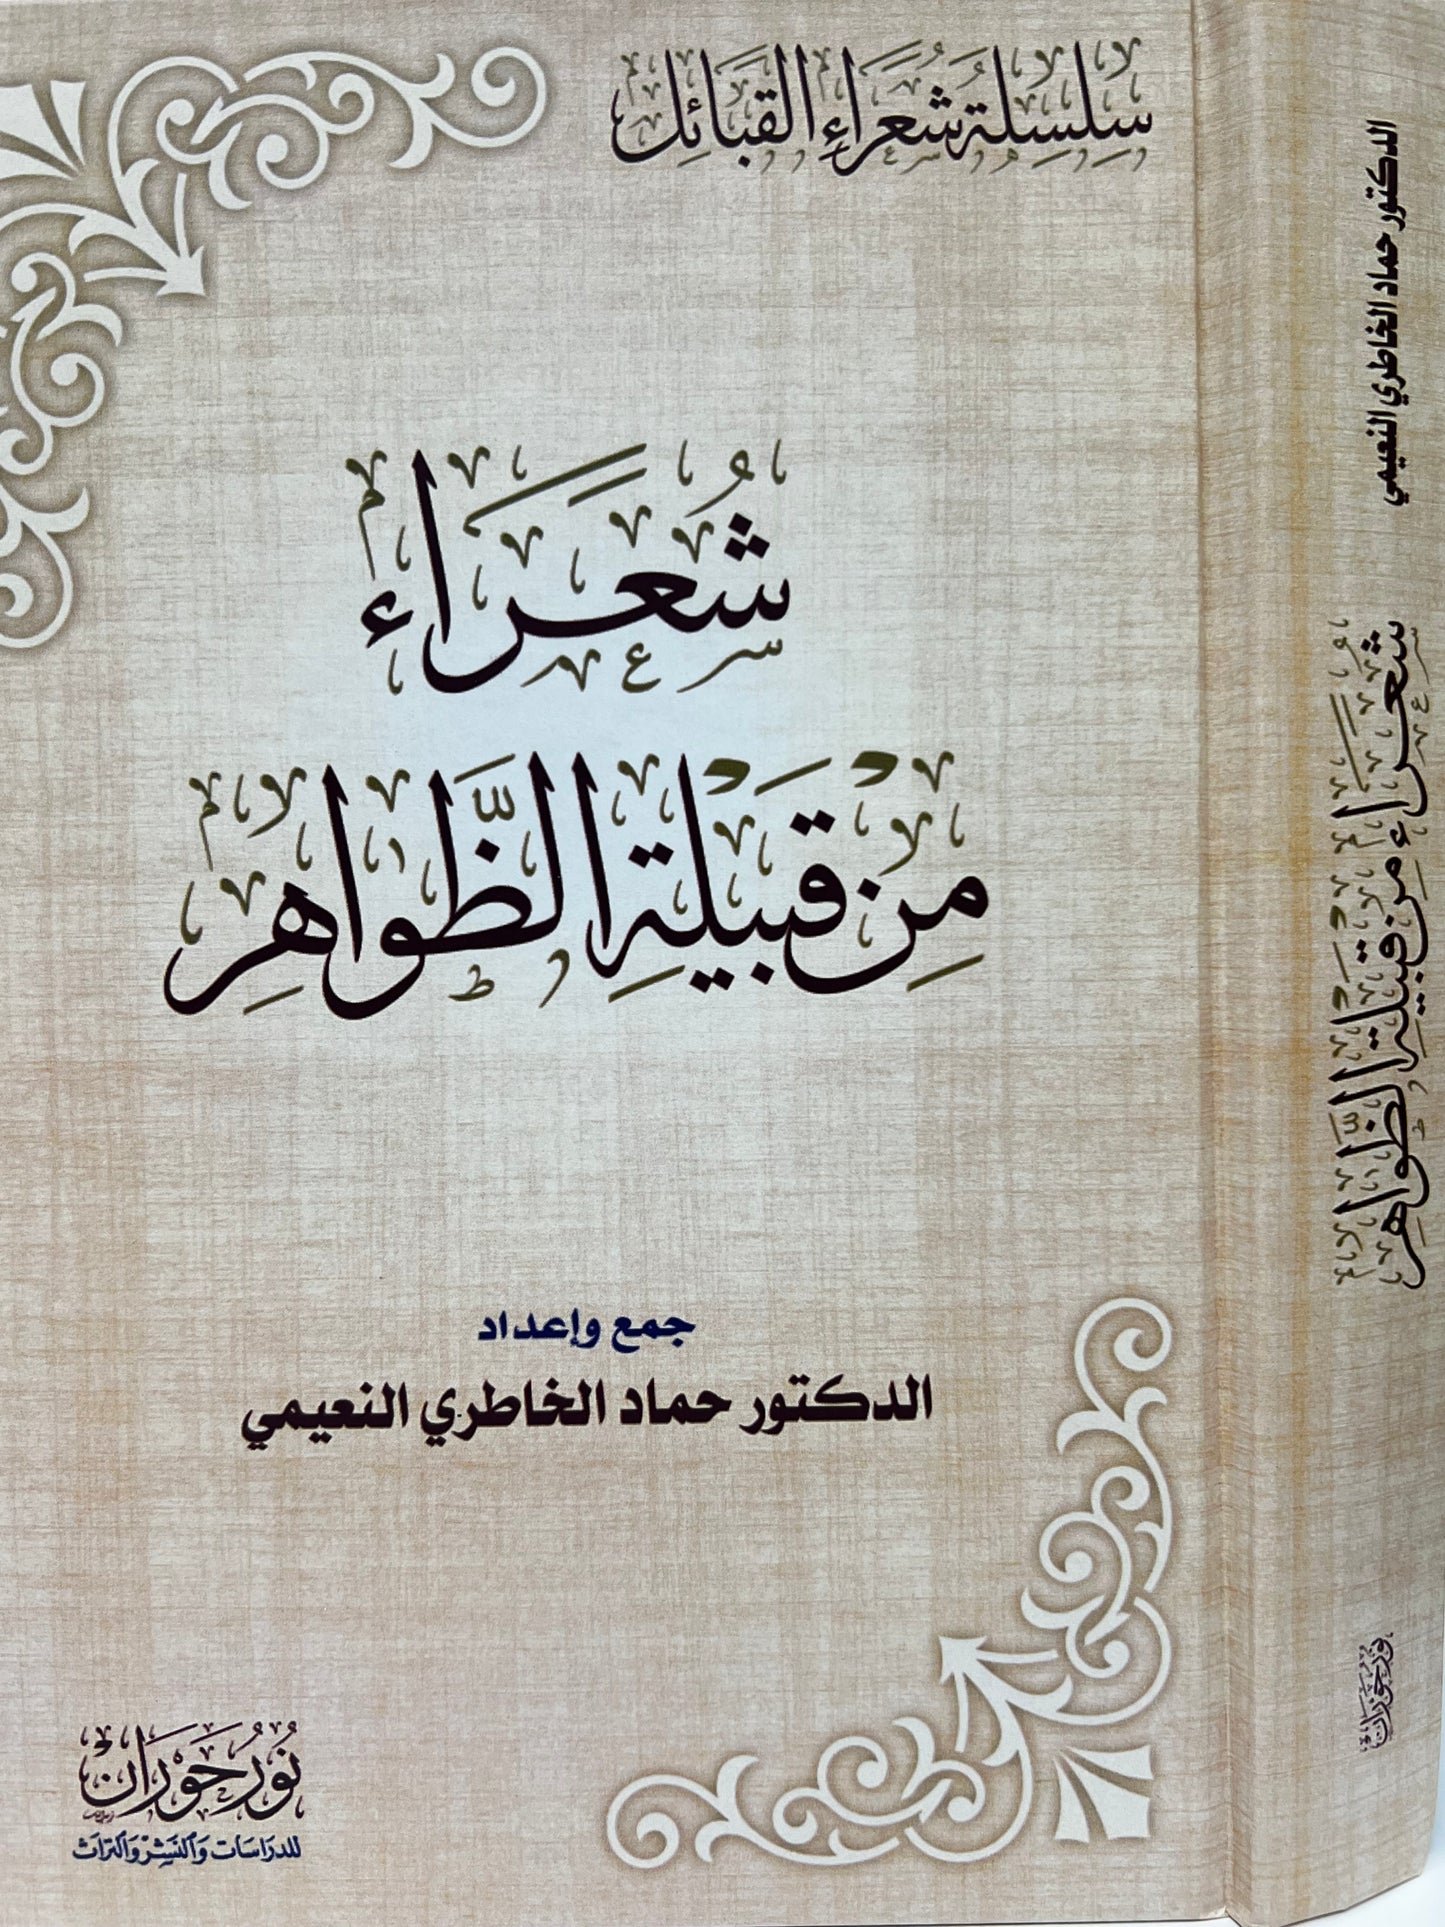 سِلسِلة شُعَرَاءِ القَبَائِل
شُعَرَاء
مِنْ قَبيْلَةِ الظَّوَاهِر
جمع وإعداد
الدكتور حماد الخاطري النعيمي
نُورُ حَوْرَانْ
للدراسات والنشر والتراث
الدكتور حماد الخاطري النعيمي
شُعَرَاء مِنْ قَبيْلَةِ الظَّوَاهِر
نور حوران